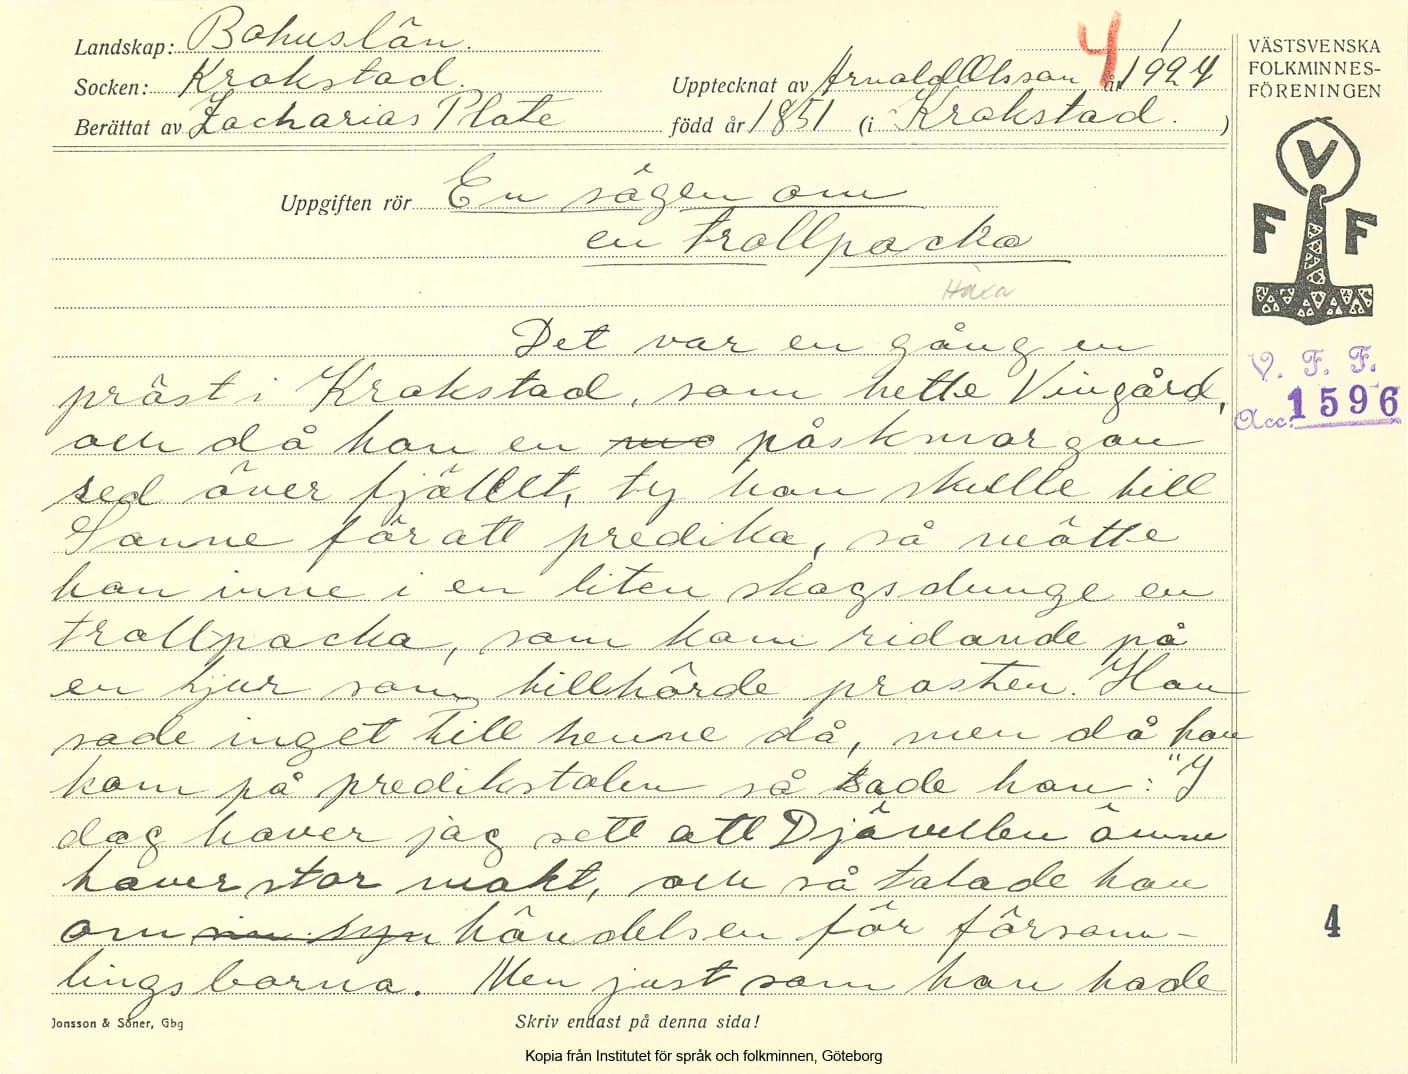 Landskap: Bohuslän.
Socken: Krokstad.
Berättat av Zacharias Plate
4/1
Upptecknat av Arnold Olsson år 1924
född år 1851 (i Krokstad.)
VÄSTSVENSKA
FOLKMINNES-
FÖRENINGEN
V
F F
V. F. F.
Acc: 1596
Uppgiften rör En sägen om
en trollpacka
Häxa
Det var en gång en
präst i Krokstad, som hette Vingård,
och då han en påskmorgon
red över fjället, ty han skulle till
Sanne för att predika, så mötte
han inne i en liten skogsdunge en
trollpacka, som kom ridande på
en tjur som tillhörde prosten. Han
sade inget till henne då, men då han
kom på predikstolen så sade han: "I
dag haver jag sett att Djävulen ännu
haver stor makt, och så talade han
om sin syn händelsen för försam-
lingsborna. Men just som han hade
4
Jonsson & Söner, Gbg
Skriv endast på denna sida!
Kopia från Institutet för språk och folkminnen, Göteborg